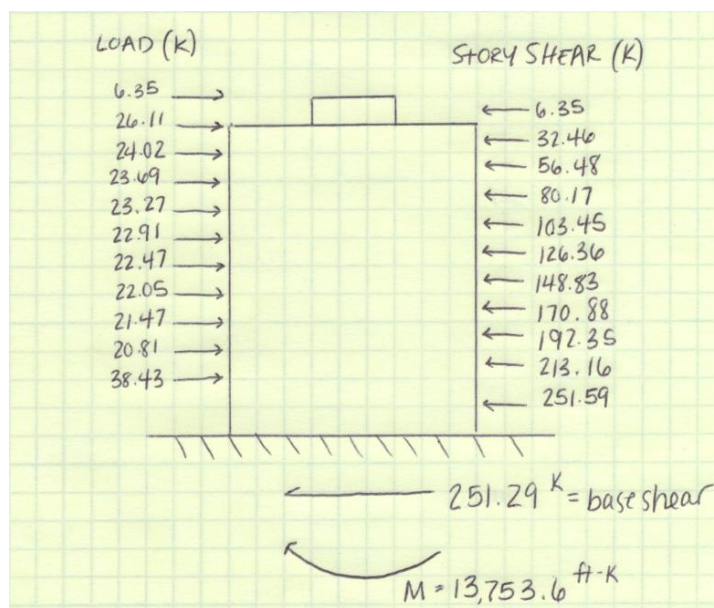 LOAD (K)
STORY SHEAR (K)
6.35
26.11
24.02
23.69
23.27
22.91
22.47
22.05
21.47
20.81
38.43
6.35
32.46
56.48
80.17
103.45
126.36
148.83
170.88
192.35
213.16
251.59
251.29 K = base shear
M = 13,753.6 ft-K